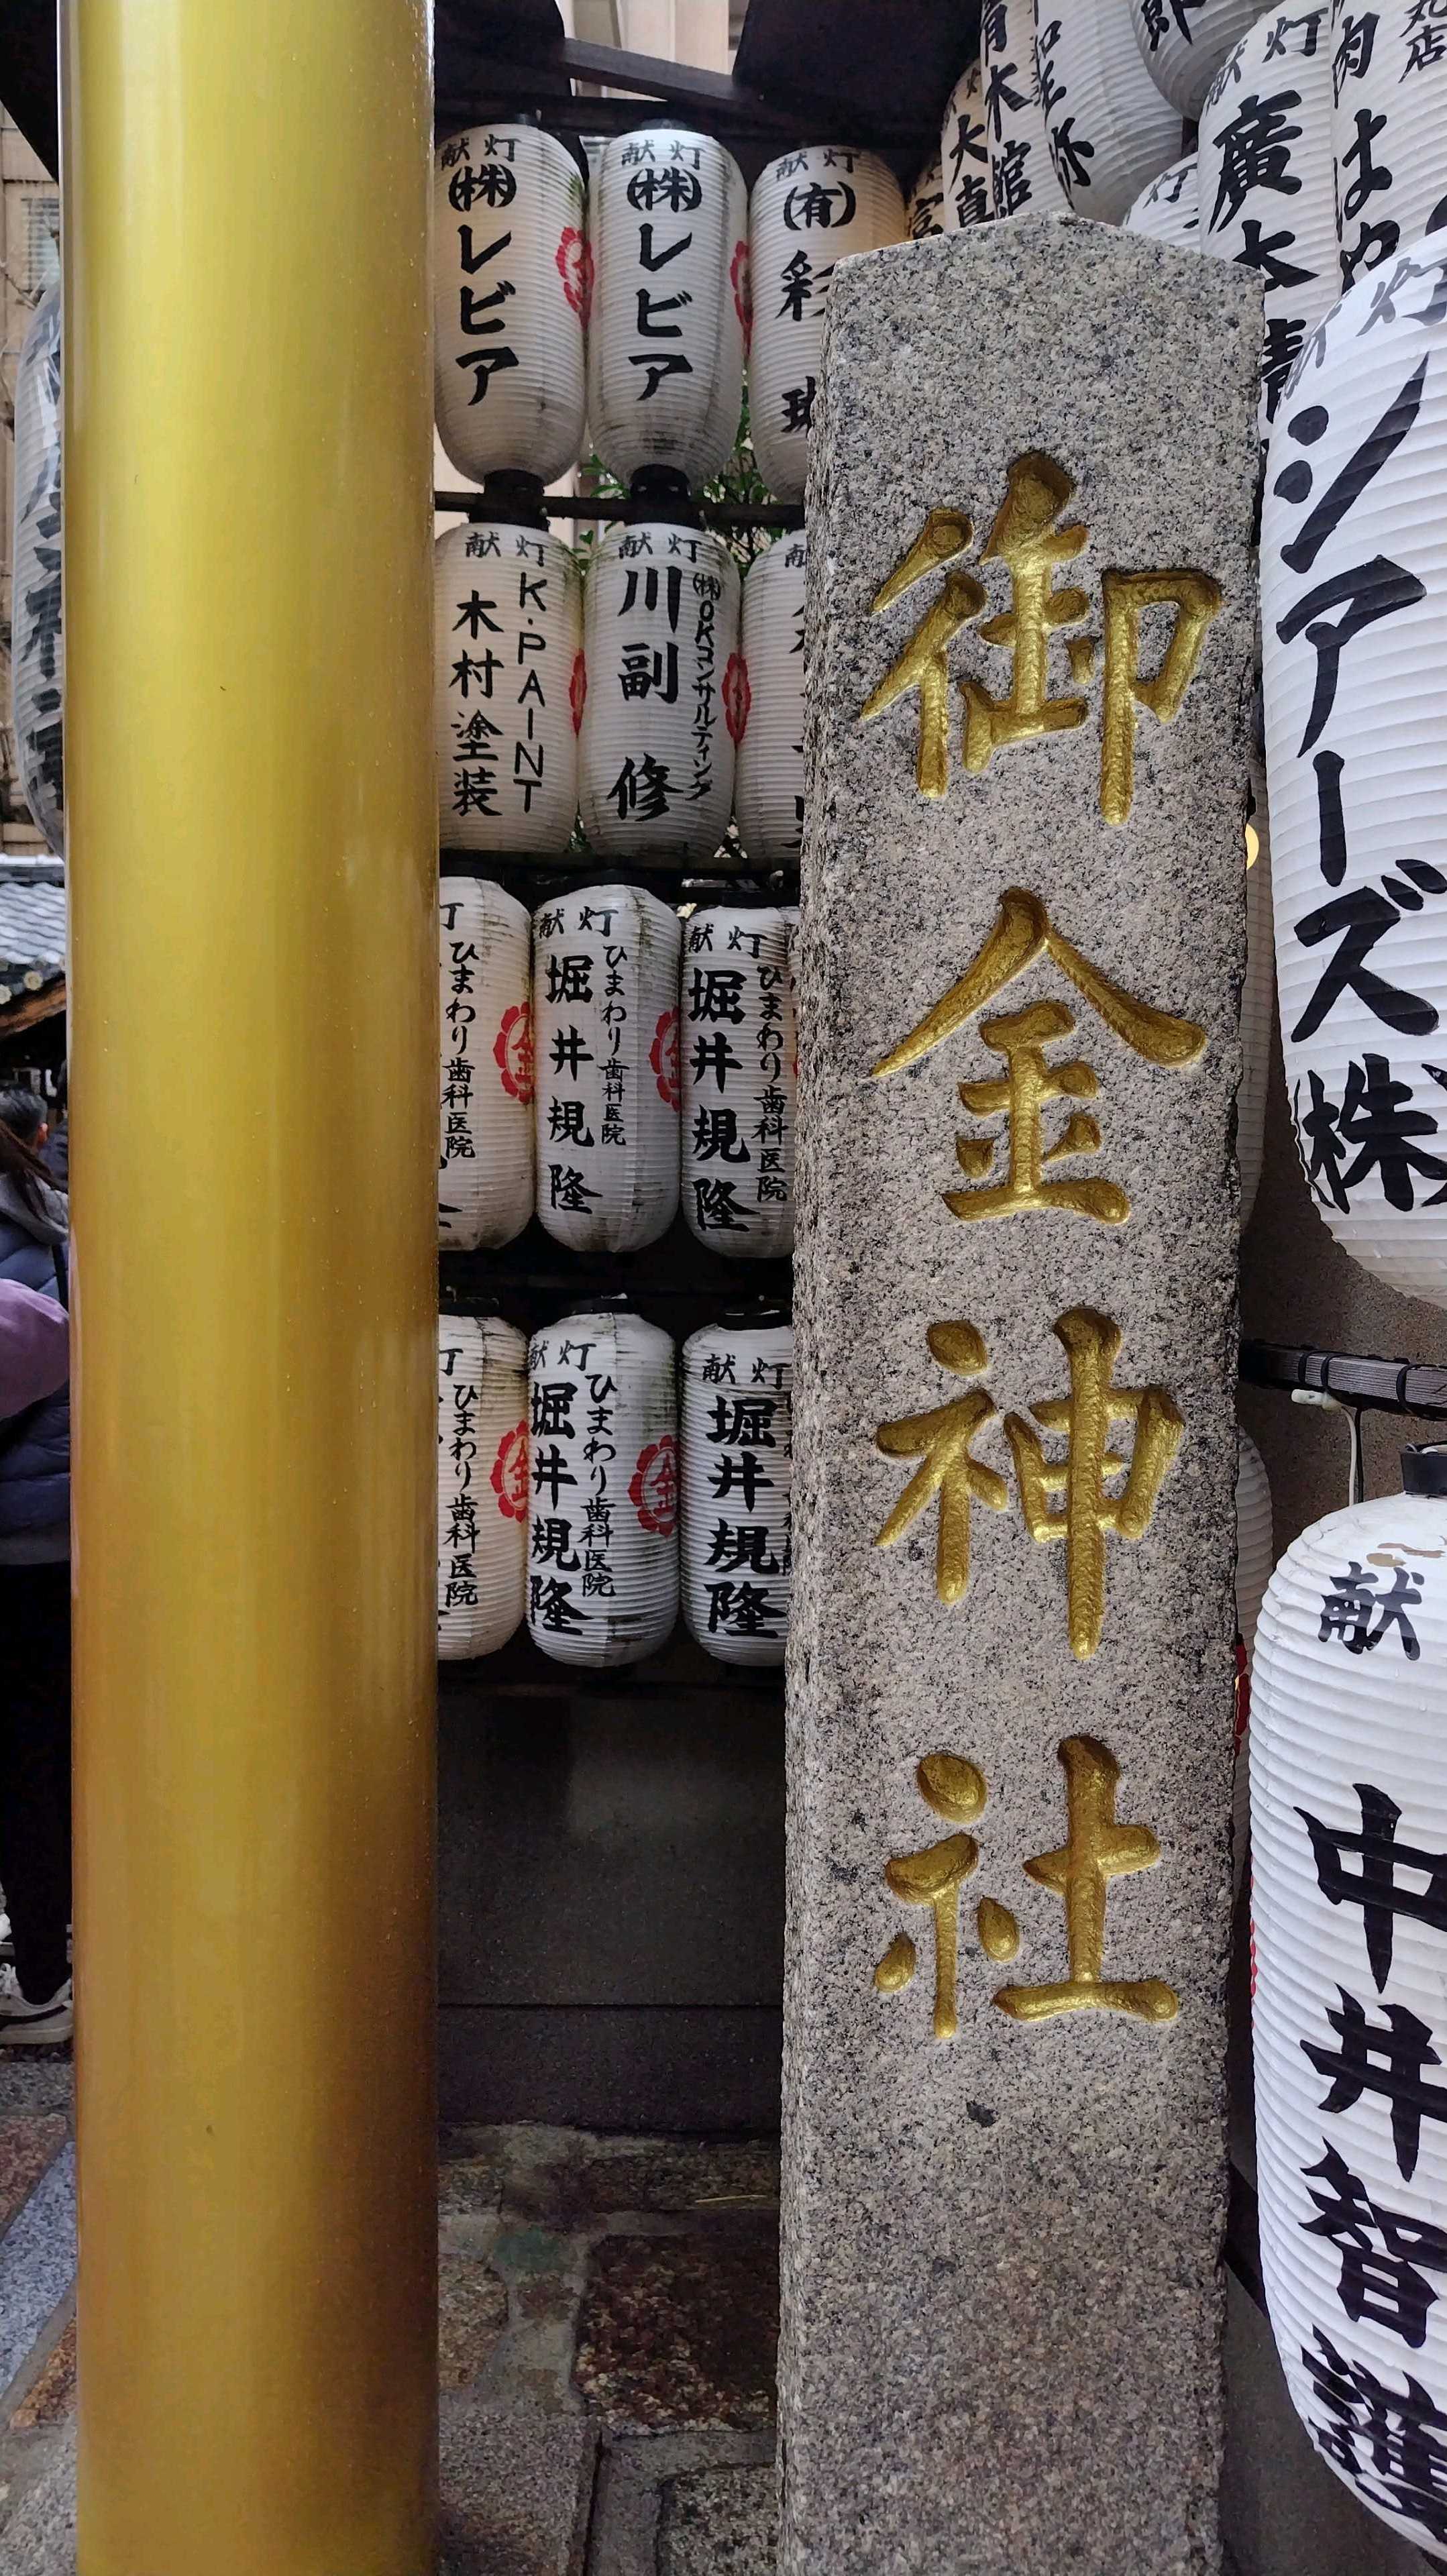 御金神社
献灯
(株)レビア
献灯
(株)レビア
献灯
(有)彩
献灯
K.PAINT
木村塗装
献灯
(株)OKコンサルティング
川副 修
灯
ひまわり歯科医院
金
献灯
ひまわり歯科医院
堀井規隆
献灯
ひまわり歯科医院
堀井規隆
灯
ひまわり歯科医院
金
献灯
ひまわり歯科医院
堀井規隆
金
献灯
堀井規隆
献灯
廣木
灯
シアーズ(株)
献
中井智